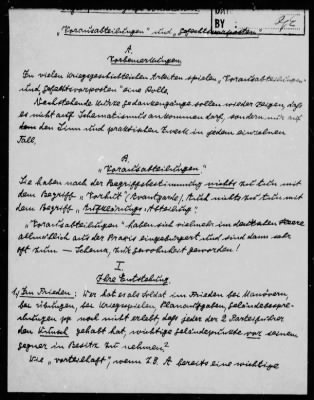 DAT
BY
"Vorausabteilungen" und "Gefechtsvorposten"
A.
Vorbemerkungen
In vielen kriegsgeschichtlichen Arbeiten spielen "Vorausabteilungen"
und "Gefechtsvorposten" eine Rolle.
Nachstehende kurze Gedankengänge sollen wieder zeigen, daß
es nicht auf Schematismus ankommen darf, sondern nur auf
den Sinn und praktischen Zweck in jedem einzelnen
Fall.
B.
"Vorausabteilungen"
Sie haben nach der Begriffsbestimmung nichts zu tun mit
dem Begriff "Vorhut" (Avantgarde), auch nichts zu tun mit
dem Begriff "Aufklärungs-Abteilung".
"Vorausabteilungen" haben sich vielmehr im deutschen Heere
allmählich aus der Praxis eingebürgert und sind dann sehr
oft zum – Schema, zur Gewohnheit geworden!
I.
Ihre Entstehung.
1.) Im Frieden: Wer hat es als Soldat im Frieden bei Manövern,
bei Übungen, bei Kriegsspielen, Planaufgaben, Geländebespre-
chungen pp noch nicht erlebt, daß jeder der 2 Parteiführer
den gehabt hat, wichtige Geländepunkte vor seinem
Gegner in Besitz zu nehmen?
Wie "vorteilhaft", wenn z.B. A bereits eine wichtige